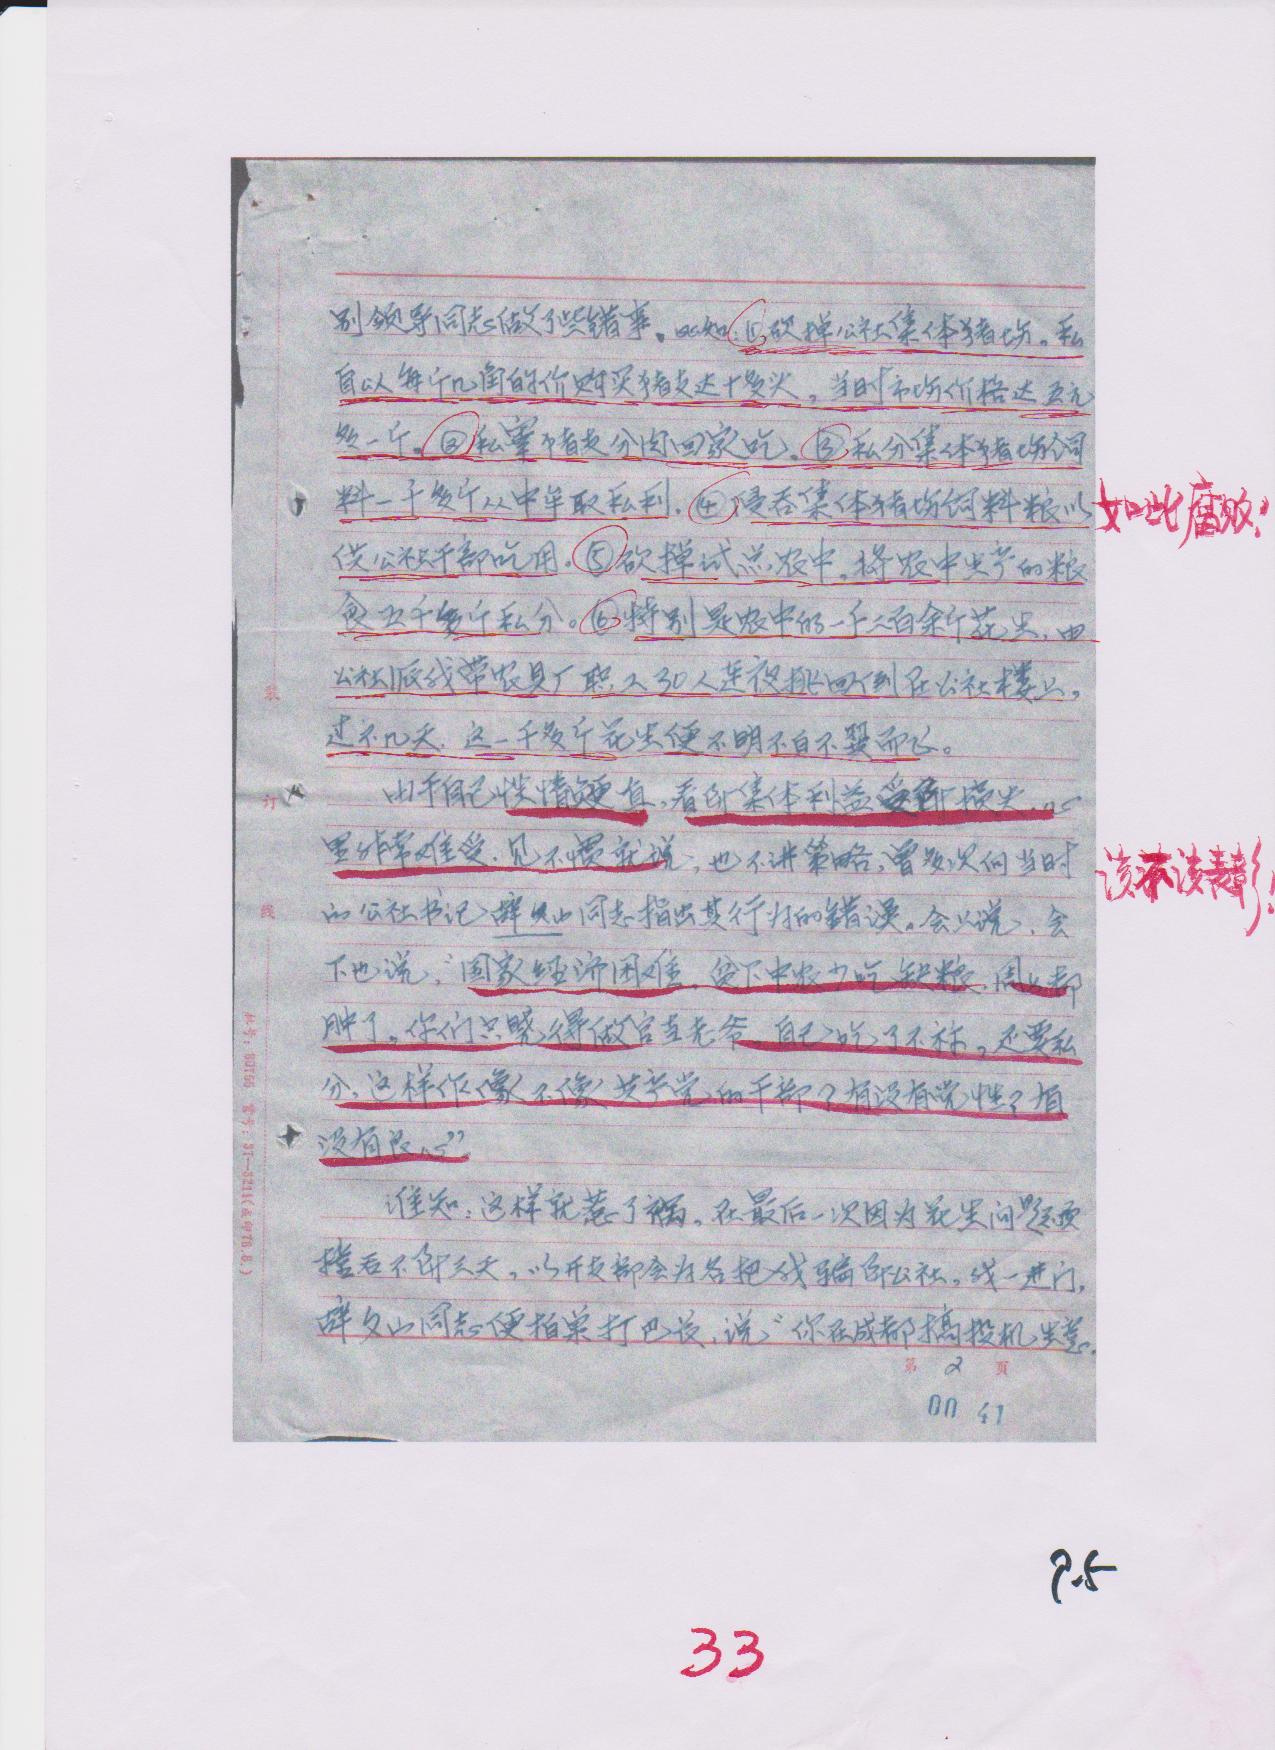 别领导同志做了些错事。比如：①砍掉公社集体猪场。私
自以每斤几角的价购买猪支达十多头，当时市场价格达五元
多一斤。②私宰猪支分肉回家吃。③私分集体猪场饲
料一千多斤从中牟取私利。④侵吞集体猪场饲料粮以
供公社干部吃用。⑤砍掉试点农中，将农中生产的粮
食五千多斤私分。⑥特别是农中的一千二百余斤花生，由
公社派我带农具厂职工30人连夜挑回全到在公社楼上，
过不几天，这一千多斤花生便不明不白不翼而飞。
由于自己性情梗直，看到集体利益受到损失，心
里非常难受，见不惯就说，也不讲策略，曾多次向当时
的公社书记薛文山同志指出其行为的错误。会上说，会
下也说，“国家经济困难，贫下中农少吃缺粮，周身都
肿了，你们只晓得做官当老爷，自己吃了不称，还要私
分，这样作像不像共产党的干部？有没有党性？有
没有良心”
谁知：这样就惹了祸。在最后一次因为花生问题顶
撞后不到三天，以开支部会为名把我骗到公社，我一进门，
薛文山同志便拍桌打巴掌，说“你在成都搞投机生意。
如此腐败！
该不该表彰！
装
订
线
第 2 页
00 41
P.5
33